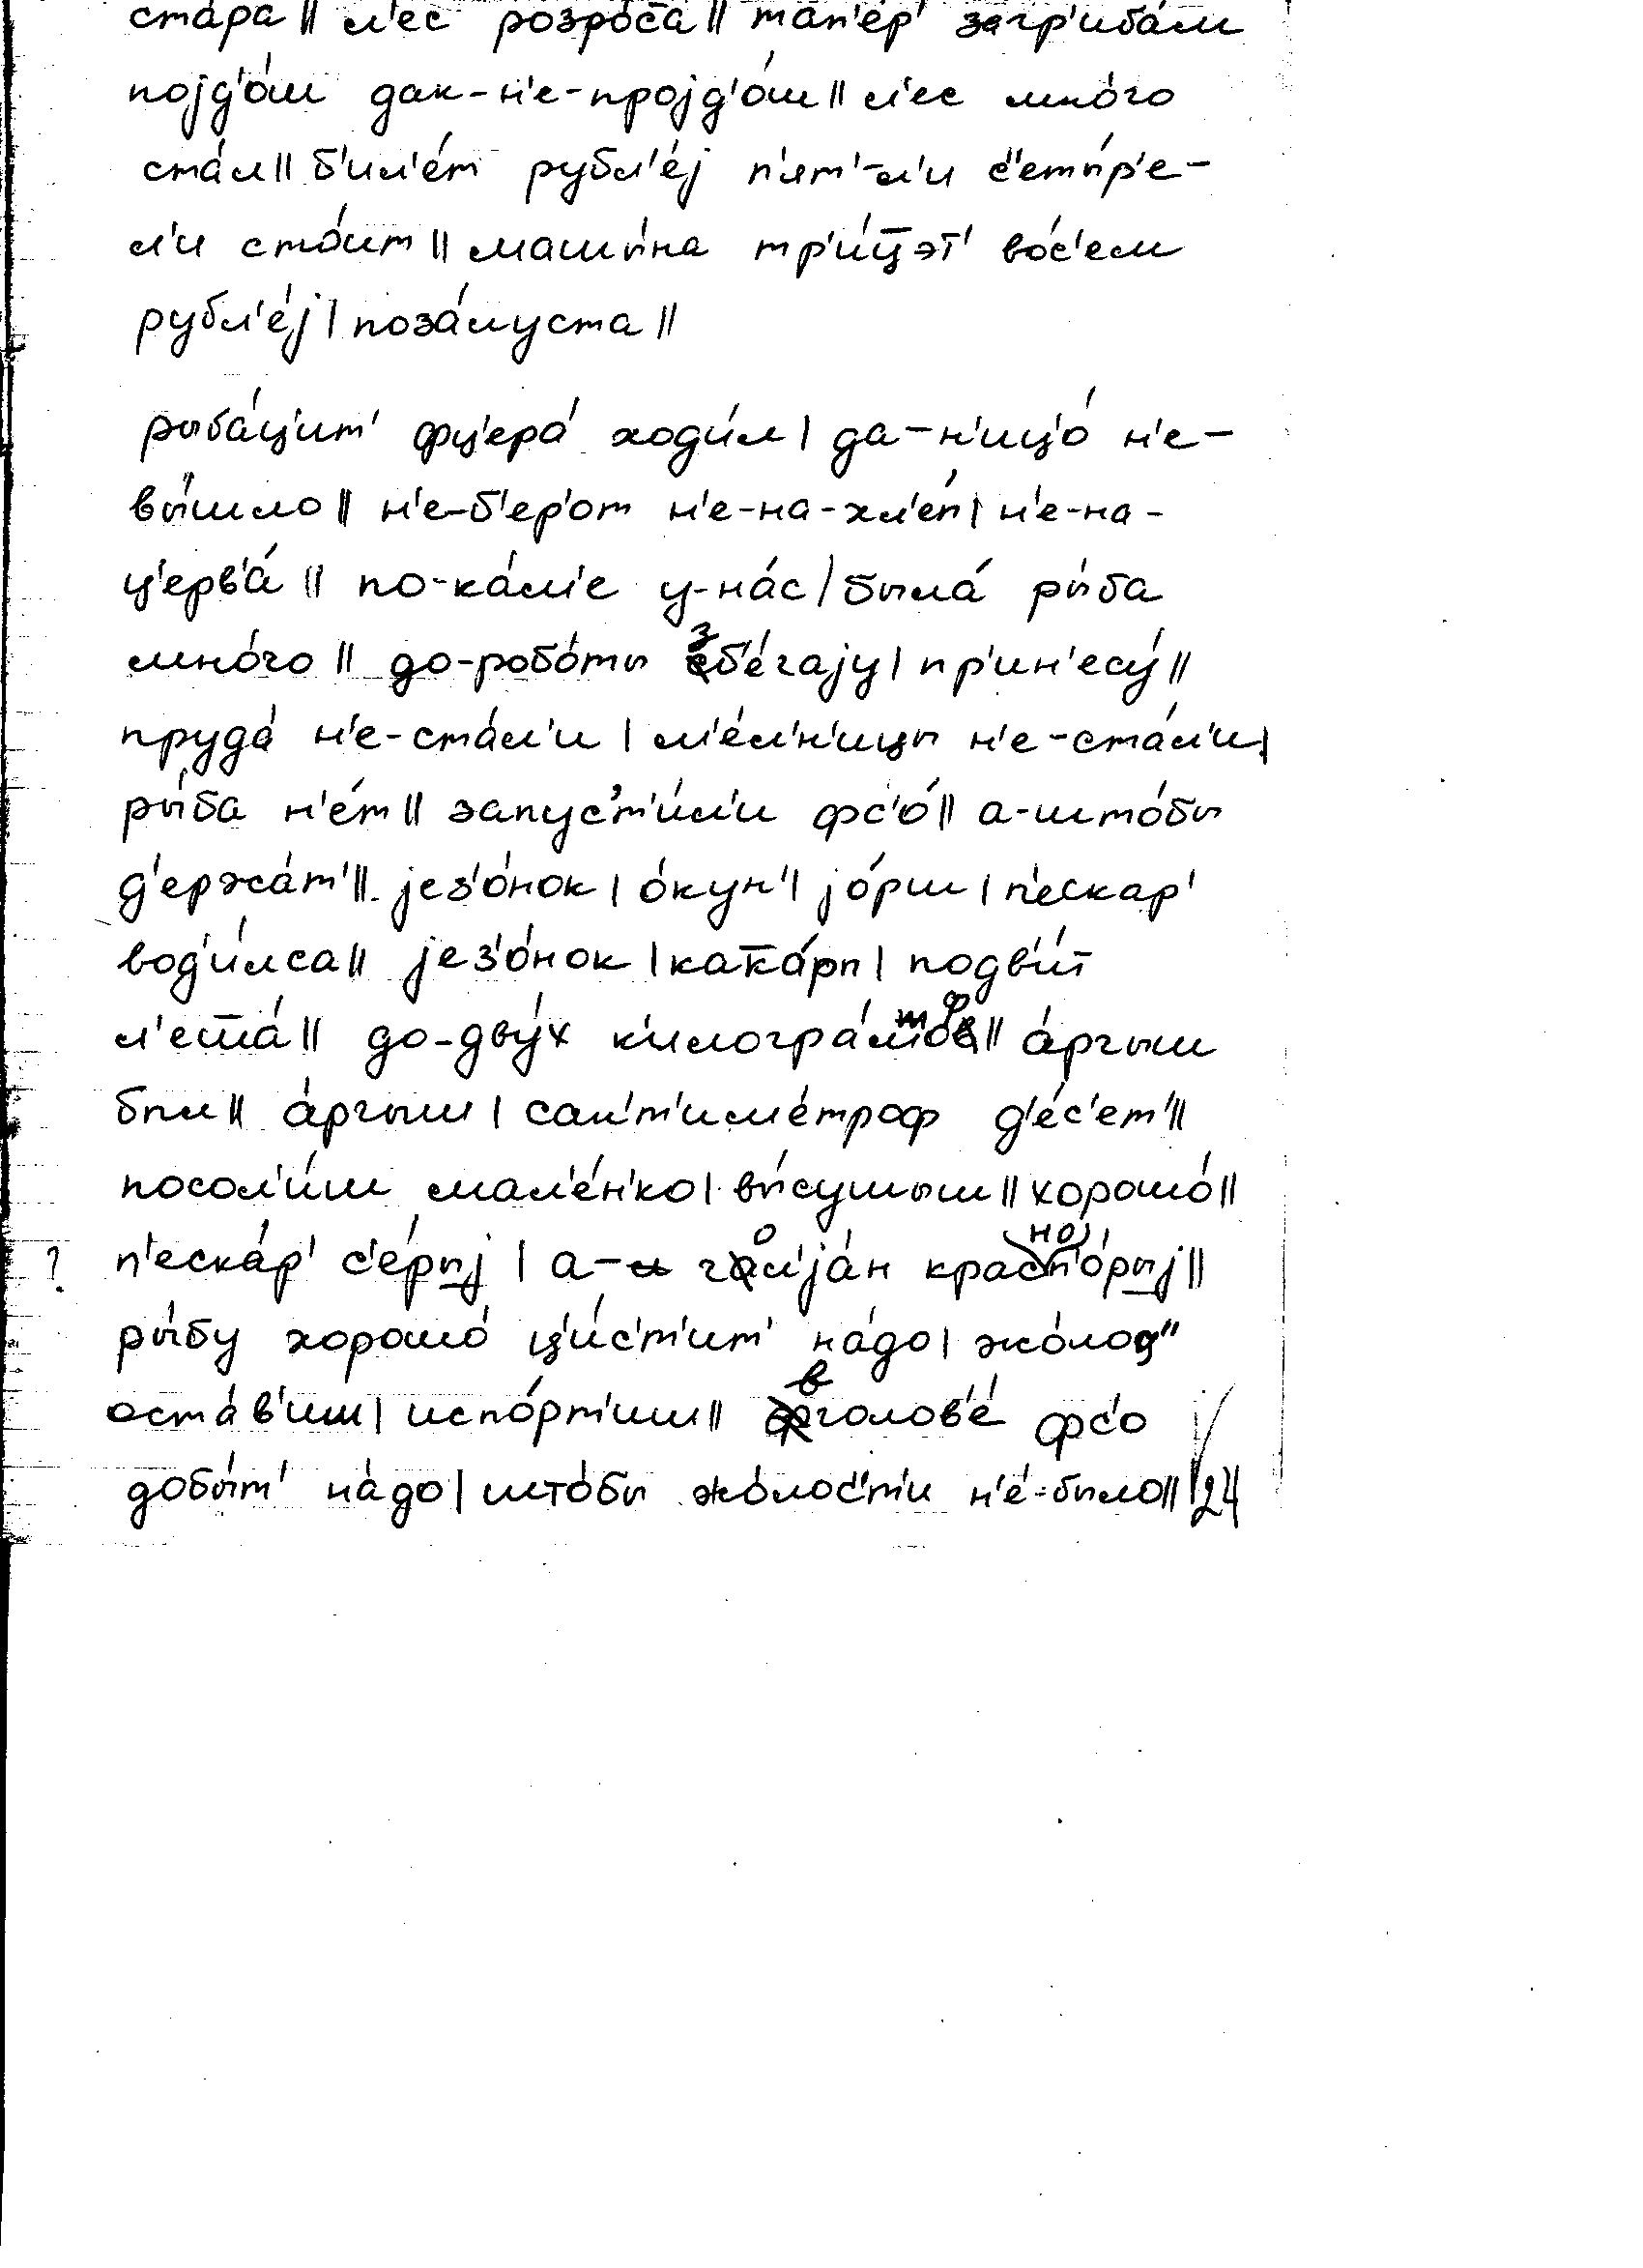 ста́ра || л'ес розро́с̅а || тап'е́р' за гр'иба́м
појд'о́ш дак-н'е-пројд'о́ш || л'ес мно́го
ста́л || б'ил'е́т рубл'е́ј п'ят'-л'и с'еты́р'е-
л'и сто́ит || машы́на тр'и́ц̅эт' во́с'ем
рубл'е́ј | поза́луста ||
рыба́ц'ит' фц'ера́ ход'и́л | да-н'иц'о́ н'е-
вы́шло || н'е-б'ер'от н'е-на-хл'е́п | н'е-на-
ц'ерв'а́ || по-ка́м'е у-на́с | была́ ры́ба
мно́го || до-робо́ты зб'е́гају | пр'ин'есу́ ||
пруда́ н'е-ста́л'и | м'е́л'н'ицы н'е-ста́л'и |
ры́ба н'е́т || запус'т'и́л'и фс'о́ || а-што́бы
д'ержа́т' || јез'о́нок | о́кун' | јо́рш | п'ескар'
вод'и́лса || јез'о́нок | кака́рп | подв'и́т
л'ет̅а́ || до-дву́х к'илогра́моф || а́ргыш
был || а́ргыш | сан'т'име́троф д'е́с'ет' ||
посол'и́ш мал'е́н'ко | вы́сушыш || хорошо́ ||
п'еска́р' с'е́рыј | а- гол'ја́н краснопо́рыј ||
ры́бу хорошо́ ц'и́с'т'ит' на́до | жо́лоц"
оста́в'иш | испо́рт'иш || вголов'е́ фс'о
добы́т' на́до | што́бы жо́лос'т'и н'е́-было || 24